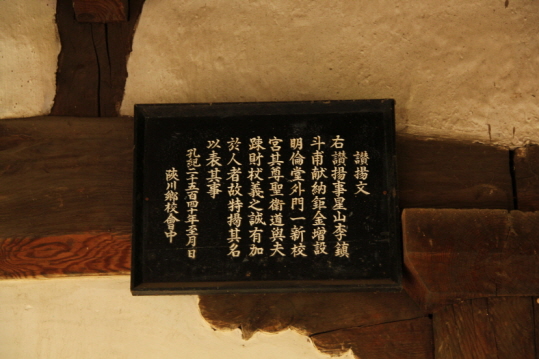 讃揚文
右讃揚事星山李鎮
斗甫献納鉅金增設
明倫堂外門一新校
宮其尊聖衛道與夫
踈財杖義之誠有加
於人者故特揚其名
以表其事
孔紀二千五百四十年五月日
陜川鄉校會中